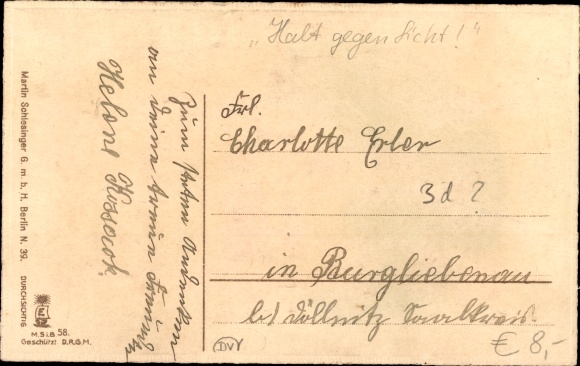 „Halt gegen Licht!“
Frl.
Charlotte Erler
3 d ?
in Burgliebenau
bei Döllnitz Saalkreis.
€ 8,-
Zum steten Andenken
an Deine treue Freundin
Helene Kossack
Martin Schlesinger G. m. b. H. Berlin N. 39.
DURCHSICHTIG
M.S.i.B. 58.
Geschützt D.R.G.M.
DV